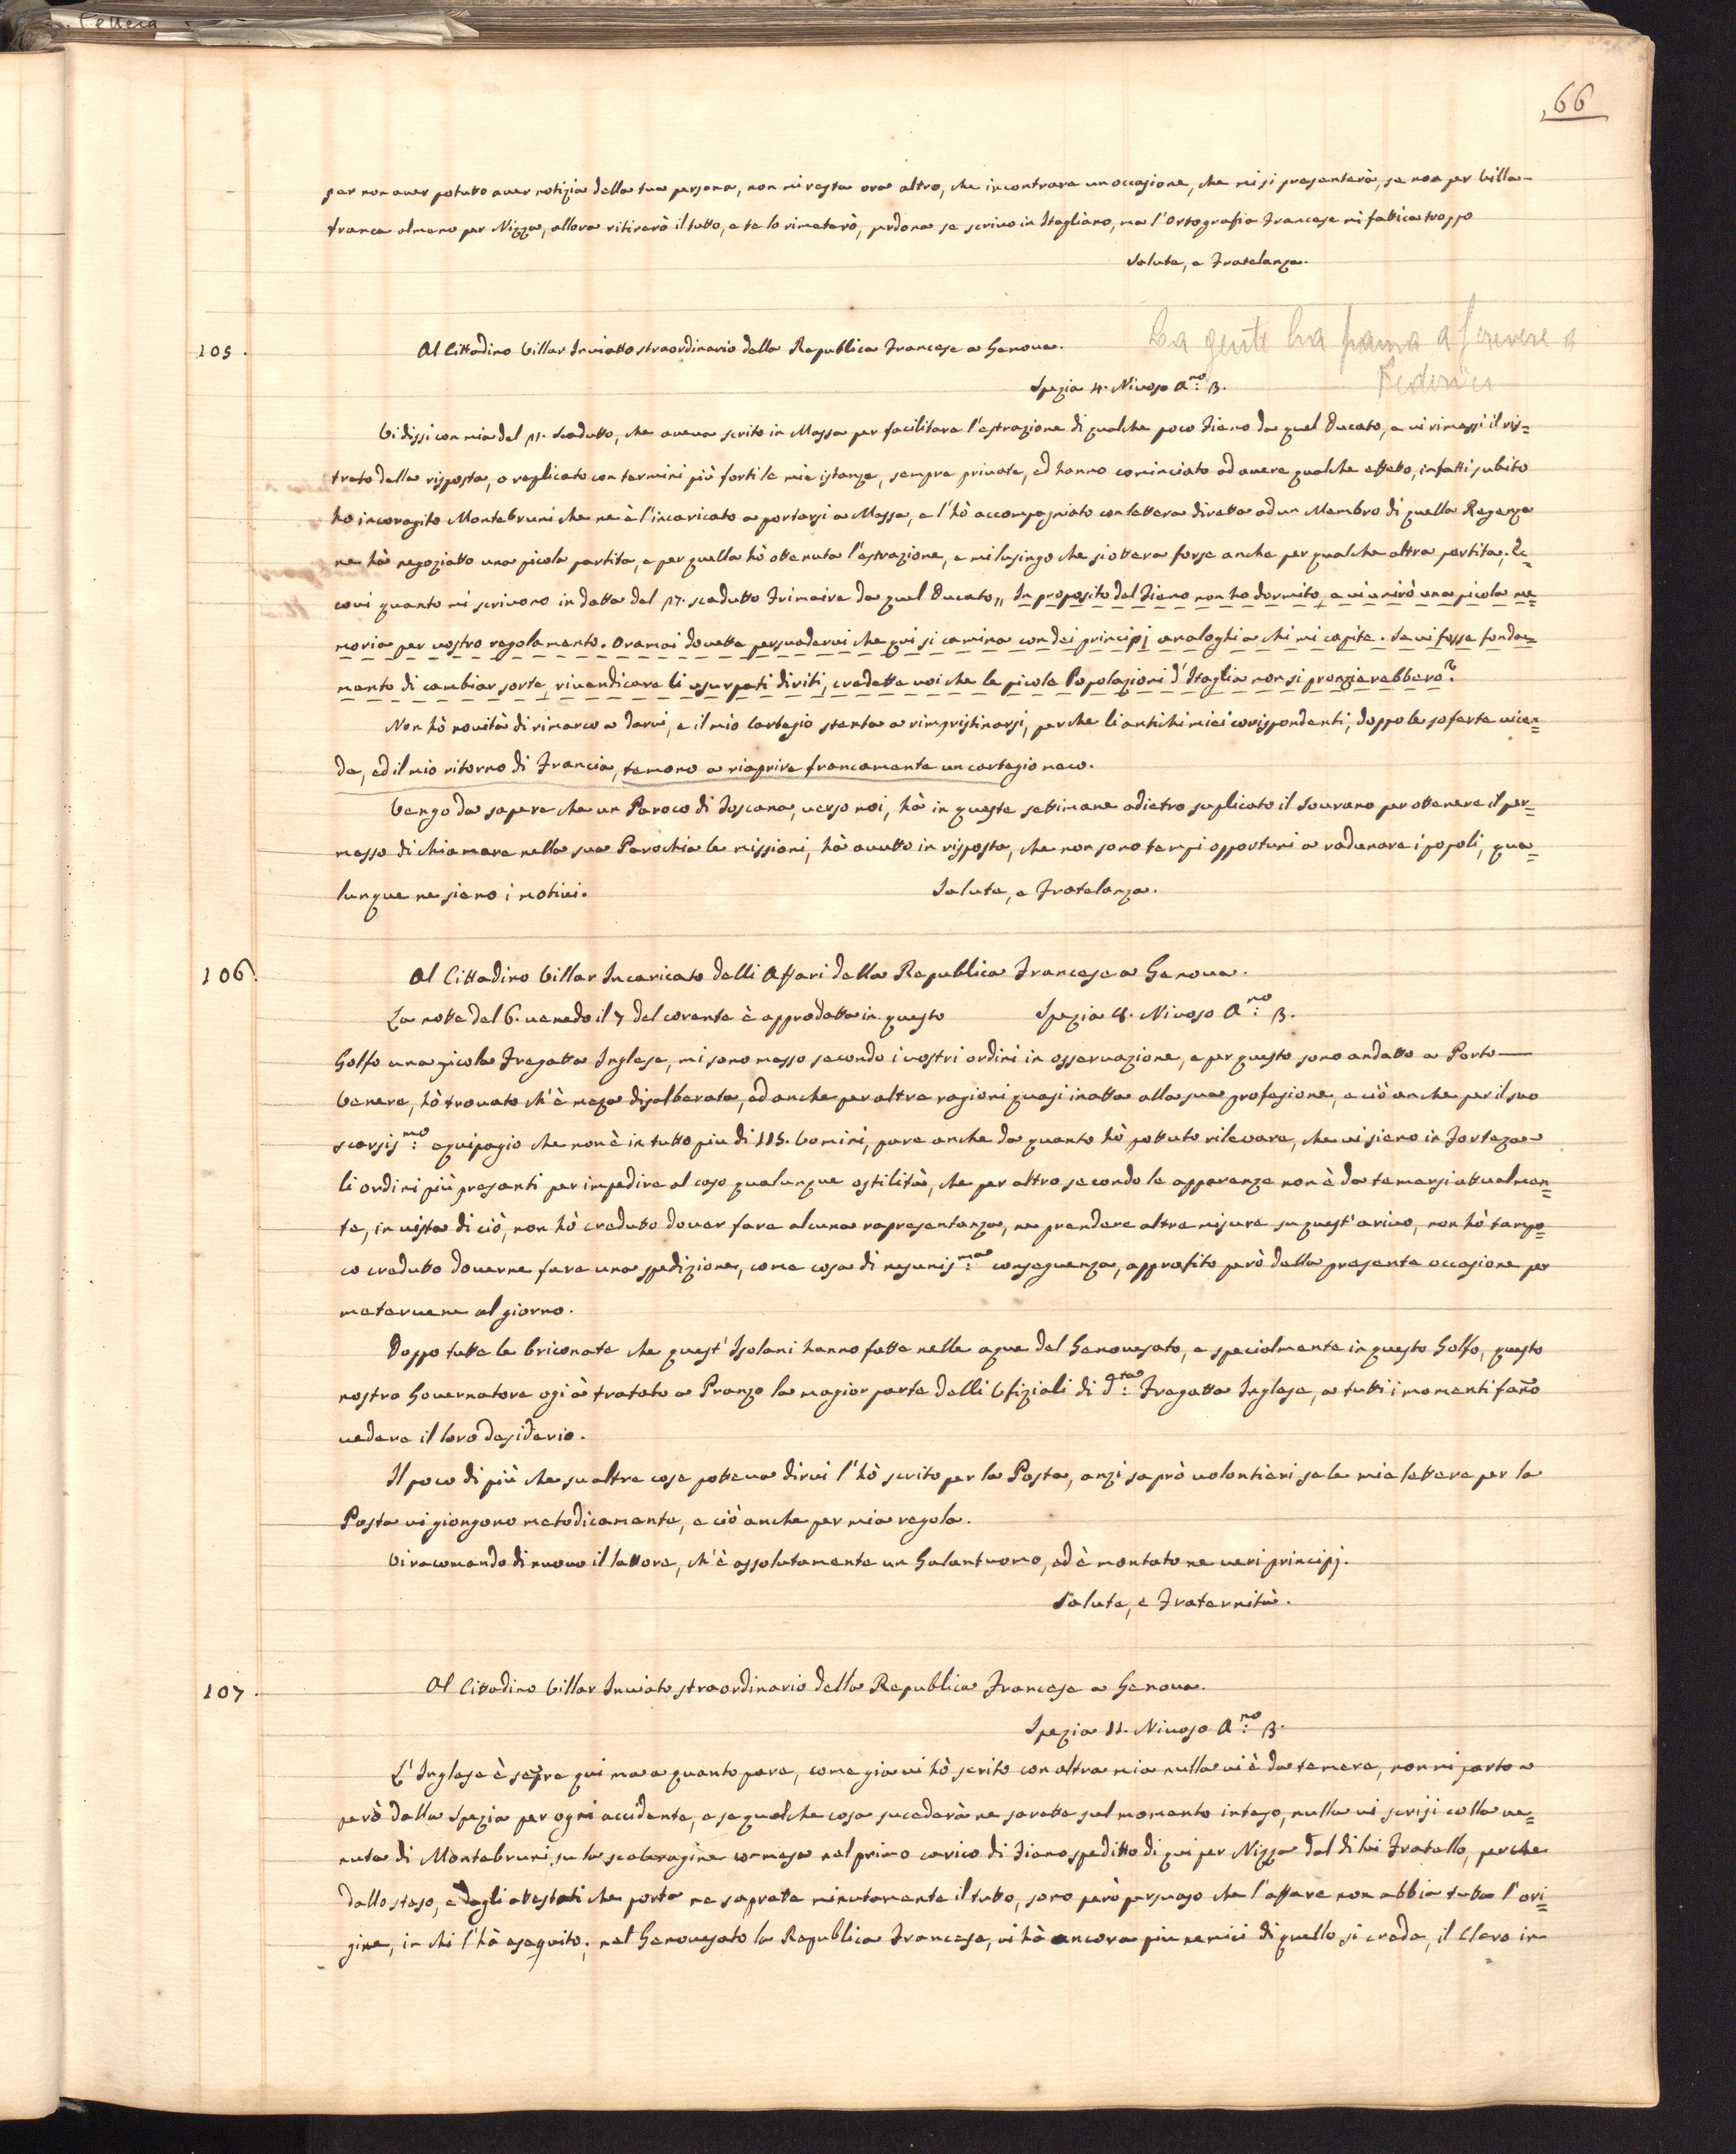 Lettera
66
per non aver potuto aver notizia della tua persona, non mi resta ora altro, che incontrare un occasione, che mi si presenterà, se non per Villa-
franca almeno per Nizza, allora ritirerò il tutto, e te lo rimeterò, perdona se scrivo in Itagliano, ma l'Ortografia Francese mi fattica troppo
Salute, e Fratelanza.
105.
Al Cittadino Villar Inviatto straordinario della Republica Francese a Genova.
La gente ha paura a scrivere a
Federici
Spezia 4. Nivoso A:no 3.
Vi dissi con mia del 21. Scadutto, che aveva scrito in Massa per facilitare l'estrazione di qualche poco Fieno da quel Ducato, e vi rimessi il ris=
trato della risposta, o replicato con termini più forti le mie istanze, sempre private, ed hanno cominciato ad avere qualche effetto, infatti subito
ho incoragito Montebruni che ne è l'incaricato a portarsi a Massa, e l'hò accompagniato con lettera diretta ad un Membro di quella Regenza
ne hà negoziatto una picola partita, e per quella hò ottenuta l'estrazione, e mi lusingo che si ottera forse anche per qualche altra partita. Ec=
covi quanto mi scrivono in datta del 27. scadutto Frimaire da quel Ducato,, In proposito del Fieno non ho dormito, e vi unirò una picola me=
moria per vostro regolamento. Oramai dovette persuadervi che qui si camina con dei principj analoghi a chi mi capite. Se vi fosse fonda=
mento di cambiar sorte, rivendicare li usurpati diriti, credette voi che le picole Popolazioni d'Itaglia non si pronzierebbero?
Non hò novità di rimarco a darvi, e il mio Cartegio stenta a rimpristinarsi, perche li antichi miei corispondenti, doppo le soferte vicen=
de, ed il mio ritorno di Francia, temono a riaprire francamente un cartegio meco.
Vengo da sapere che un Paroco di Toscana, verso noi, hà in queste settimane adietro suplicato il Sovrano per ottenere il per=
messo di chiamare nella sua Parochia le missioni, hà avutto in risposta, che non sono tempi opportuni a radunare i popoli, qua=
lunque ne sieno i motivi.
Salute, e Fratelanza.
106.
Al Cittadino Villar Incaricato delli Affari della Republica Francese a Genova.
La notte del 6. venendo il 7 del corente è approdatta in questo
Spezia 8. Nivoso A:no 3.
Golfo una picola Fregatta Inglese, mi sono messo secondo i vostri ordini in osservazione, e per questo sono andatto a Porto
Venere, hò trovato ch'è meza disalberata, ed anche per altre ragioni quasi inatta alla sua profesione, e ciò anche per il suo
scarsis:mo equipagio che non è in tutto più di 115. Vomini, pare anche da quanto hò pottuto rilevare, che vi sieno in Forteza
li ordini più presanti per impedire al caso qualunque ostilità, che per altro secondo le apparenze non è da temersi attualmen=
te, in vista di ciò, non hò creduto dover fare alcuna rapresentanza, ne prendere altre misure su quest'arivo, non hò tampo=
co creduto doverne fare una spedizione, come cosa di nesunis:ma conseguenza, approfito però della presente occasione per
metervene al giorno.
Doppo tutte le briconate che quest'Isolani hanno fatte nelle aque del Genovesato, e specialmente in questo Golfo, questo
nostro Governatore ogi à tratato a Pranzo la magior parte delli Ufiziali di d:ta Fregatta Inglese, a tutti i momenti fano
vedere il loro desiderio.
Il poco di più che su altre cose potteva dirvi l'hò scrito per la Posta, anzi saprò volontieri se le mie lettere per la
Posta vi giongono metodicamente, e ciò anche per mia regola.
Vi racomando di nuovo il lattore, ch'è assolutamente un Galantuomo, ed è montato ne veri principj.
Salute, e Fraternità.
107.
Al Cittadino Villar Inviato straordinario della Republica Francese a Genova.
Spezia 11. Nivoso A:no 3.
L'Inglese è sepre qui ma a quanto pare, come gia vi hò scrito con altra mia nulla vi è da temere, non mi parto
però dalla Spezia per ogni accidente, e se qualche cosa sucederà ne sarette sul momento inteso, nulla vi scrisi colla ve=
nuta di Montebruni su la scaberagine comesa nel primo carico di Fieno speditto di qui per Nizza dal di lui Fratello, perche
dallo steso, e dagli atestati che porta ne saprete minutamente il tutto, sono però persuaso che l'affare non abbia tutta l'ori=
gine, in chi l'hà eseguito; nel Genovesato la Republica Francese, vi hà ancora più nemici di quello si crede, il Clero in